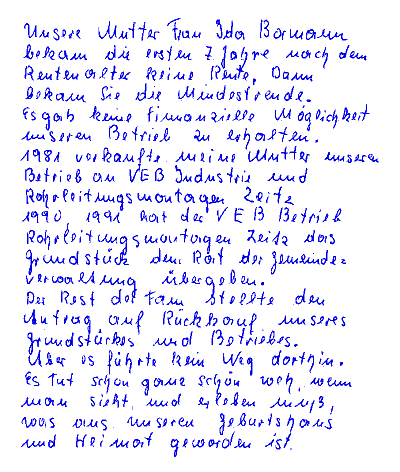 Unsere Mutter Frau Ida Bormann
bekam die ersten 7 Jahre nach dem
Rentenalter keine Rente, Dann
bekam Sie die Mindestrende.
Es gab keine Finanzielle Möglichkeit
unseren Betrieb zu erhalten.
1981 verkaufte meine Mutter unseren
Betrieb an VEB Industrie und
Rohrleitungsmontagen Zeitz
1990, 1991 hat der VEB Betrieb
Rohrleitungsmontagen Zeitz das
Grundstück dem Rat der Gemeinde=
verwaltung übergeben.
Der Rest der Fam stellte den
Antrag auf Rückkauf unseres
Grundstückes und Betriebes.
Aber es führte kein Weg dorthin.
Es tut schon ganz schön weh, wenn
man sieht, und erleben muß,
was aus unseren Geburtshaus
und Heimat geworden ist.